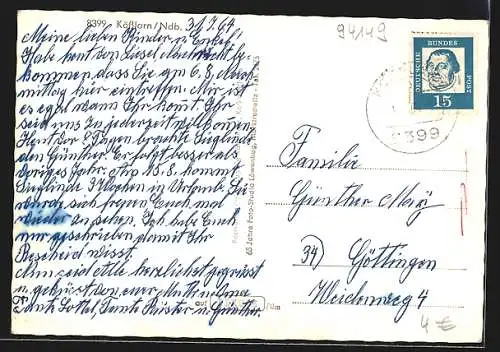 8399 - Kößlarn/Ndb. 31.7.64
94149
Meine lieben Kinder u. Enkel!
Habe heut von Liesel Nachricht be-
kommen, dass Sie am 6.8. nach-
mittag hier eintreffen. Mir ist
es egal wann Ihr kommt. Ihr
seid uns zu jederzeit willkommen.
Heut vor 8 Tagen brachte Sieglinde
den Günther. Er folgt besser als
voriges Jahr. Am 15.8. kommt
Sieglinde 3 Wochen in Urlaub. Sie
würde sich freuen Euch mal
wieder zu sehen. Ich habe Euch
nur geschrieben damit Ihr
Bescheid wisst.
Nun seid alle herzlichst gegrüsst
u. geküsst von eurer Mutti u. Oma
Tante Lottel, Tante u. Günther
DEUTSCHE BUNDESPOST
15
8399
Familie
Günther May
34) Göttingen
Weidenweg 4
4 €
60 Jahre Foto-Studio